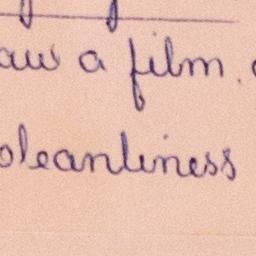 aw a film.
cleanliness